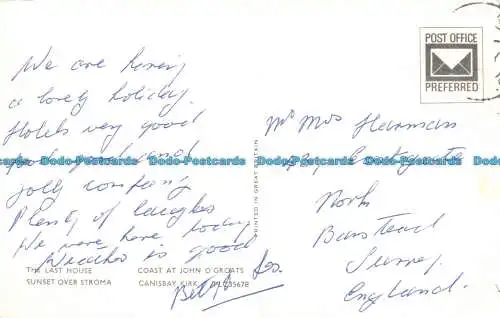 We are having
a lovely holiday.
Hotels very good
food good and
jolly company
Plenty of laughs
We were here today
Weather is good
THE LAST HOUSE
SUNSET OVER STROMA
COAST AT JOHN O'GROATS
CANISBAY KIRK
PRINTED IN GREAT BRITAIN
POST OFFICE
PREFERRED
Mr Mrs Harman
Nork
Banstead
Surrey
England.
Dodo-Postcards Dodo-Postcards Dodo-Postcards Dodo-Postcards